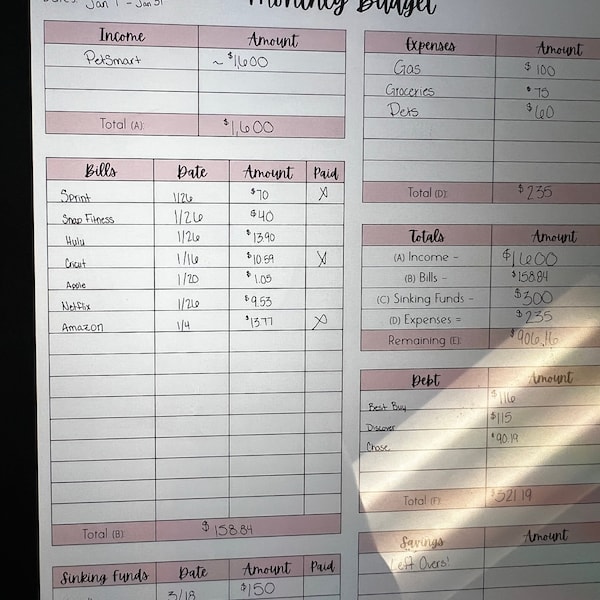 Jan 1 - Jan 31
Monthly Budget
Income Amount
PetSmart ~ $1,600
Total (A): $1,600
Bills Date Amount Paid
Sprint 1/26 $70 X
Snap Fitness 1/26 $40
Hulu 1/26 $13.90
Cricut 1/16 $10.59 X
Apple 1/20 $1.05
Netflix 1/26 $9.53
Amazon 1/4 $13.77 X
Total (B): $158.84
Sinking Funds Date Amount Paid
3/18 $150
Expenses Amount
Gas $100
Groceries $75
Pets $60
Total (D): $235
Totals Amount
(A) Income - $1,600
(B) Bills - $158.84
(C) Sinking Funds - $300
(D) Expenses = $235
Remaining (E): $906.16
Debt Amount
Best Buy $116
Discover $115
Chase $90.19
Total (F): $321.19
Savings Amount
Left Overs!